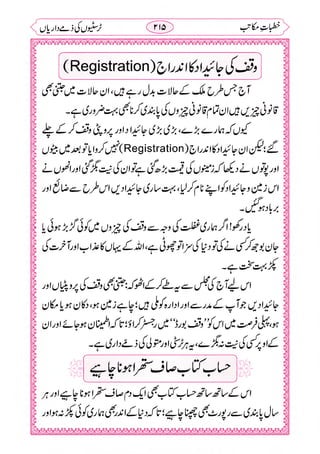 خطباتِ مکاتب ۲۱۵ ٹرسٹیوں کی ذمے داریاں
وقف کی جائیداد کا اندراج (Registration)
آج جس طرح ملک کے حالات بدل رہے ہیں، ان حالات میں جتنی بھی
قانونی چیزیں ہیں ان تمام قانونی چیزوں کی پابندی کرنا بھی بہت ضروری ہے۔
کیوں کہ ہمارے بڑے، بڑی بڑی جائیداد اور پراپرٹی وقف کر کے چلے
گئے؛ لیکن! ان جائیداد کا اندراج (Registration) نہیں کروایا تو بعد میں بیٹوں
اور پوتوں نے دیکھا کہ زمینوں کی قیمت بڑھ گئی تو ان کی نیت بگڑ گئی اور انھوں نے
اس زمین و جائیداد کو اپنے نام کرا لیا، بہت ساری جائیدادیں اس طرح سے ضائع اور
برباد ہو گئیں۔
یاد رکھو! اگر ہماری غفلت کی وجہ سے وقف کی چیزوں میں کوئی گڑبڑ ہوئی یا
جان بوجھ کر کسی نے کی تو دنیا کی تو سزا چھوڑو، اللہ کے یہاں کا عذاب اور آخرت کی
پکڑ بہت سخت ہے۔
اس لیے آج کی مجلس سے یہ طے کر کے اٹھو کہ: جتنی بھی وقف کی پراپرٹیاں اور
جائیدادیں آپ کو جو مدرسے کے اور ادارہ کو ملیں؛ چاہے زمین ہو، دکان ہو یا مکان ہو
پہلی فرصت میں اس کو ’’وقف بورڈ‘‘ میں رجسٹر کراؤ؛ تاکہ اطمینان ہو جائے اور ان
کے اوپر کسی کی نیت نہ بگڑے، یہ ٹرسٹی اور متولی کی ذمے داری ہے۔
حساب کتاب صاف ستھرا ہونا چاہیے
اس کے ساتھ ساتھ حساب کتاب بھی ایک دم صاف ستھرا ہونا چاہیے اور ہر
سال پابندی سے رپورٹ بھی چھاپنا چاہیے؛ تاکہ دنیا کے اندر بھی ہماری کوئی پکڑ نہ ہو اور